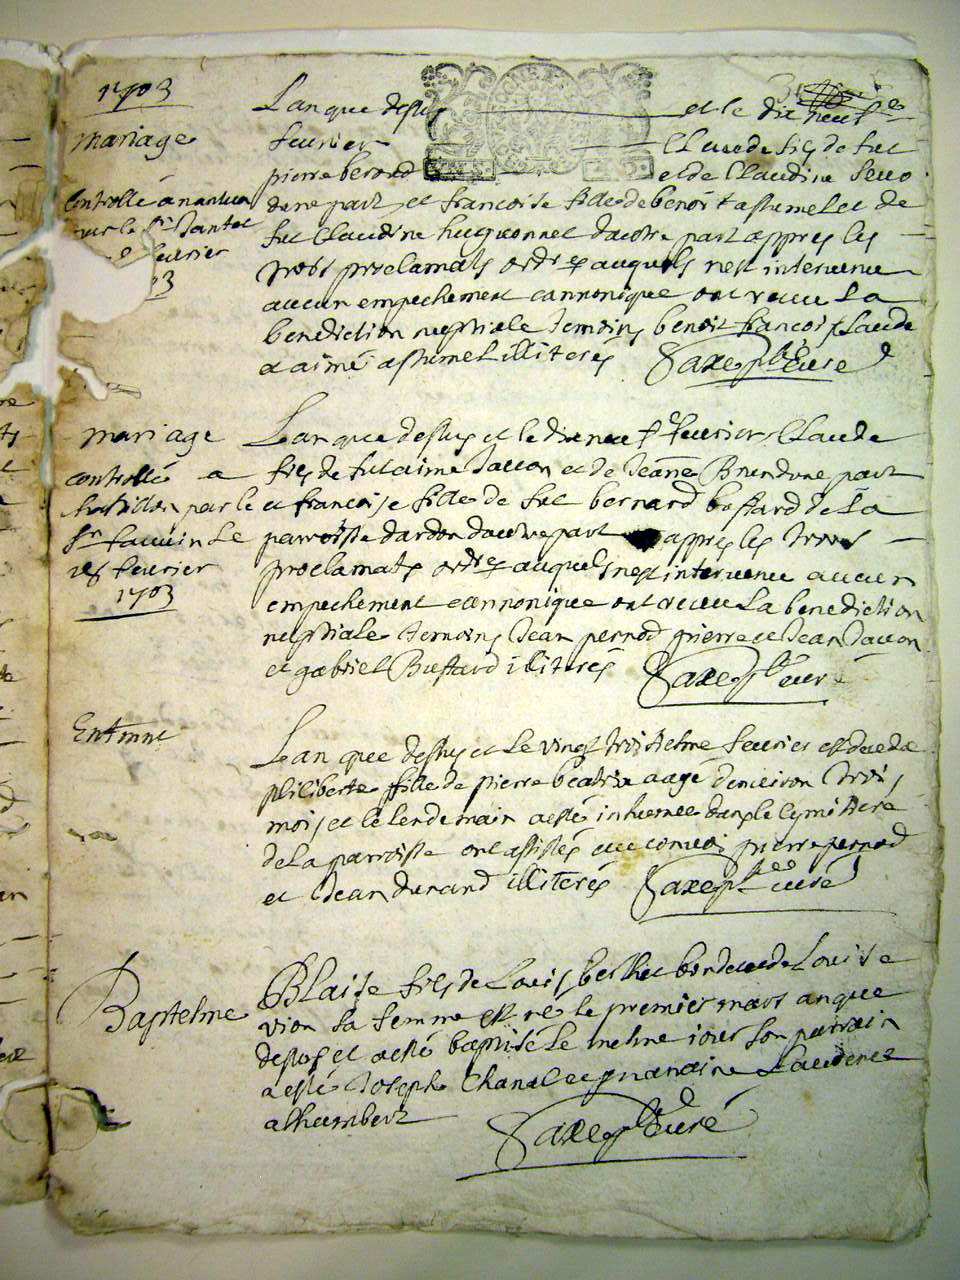 1703
Mariage
Lan que dessus et le dix neuf
feurier Claude fils de fut
pierre berod et de Claudine
dune part et francoise fille de benoit assumel et de
fut Claudine hugonnet dautre part appres les
trois proclamats ordres auquels nest interuenu
aucun empechement cannonique ont receu la
benediction nuptiale temoins benoit francois Claude
et aimé assumel illiterés Saxe ptre curé
controllé a nantua
par le Sr
feurier
3
mariage
controllé a
chastillon par le
Sr fauuin Le
feurier
1703
Lan que dessus et le dix neuf feurier Claude
fils de fut aime Jacon et de Jeanne Brun dune part
et francoise fille de fut bernard boffard de La
parroisse dardon dautre part appres les trois
proclamats ordres auquels nest interuenu aucun
empechement cannonique ont receu La benediction
nuptiale temoins Jean pernod pierre et Jean Jacon
et gabriel Buffard illiterés Saxe ptre curé
Entmnt
Lan que dessus et Le vingt troisiesme feurier est decedée
philiberte fille de pierre beatrix aagé denuiron trois
mois et le lendemain a esté inhumée dans le cymistiere
de La parroisse ont assistés au conuoi pierre pernod
et Jean durand illiterés Saxe ptre curé
Baptesme
Blaise fils de Louis berthet et de Louise
vion sa femme est né le premier mars an que
dessus et a esté baptisé le mesme iour son parrain
a esté Joseph Chanal et maraine Laudence
alhumbert
Saxe ptre curé